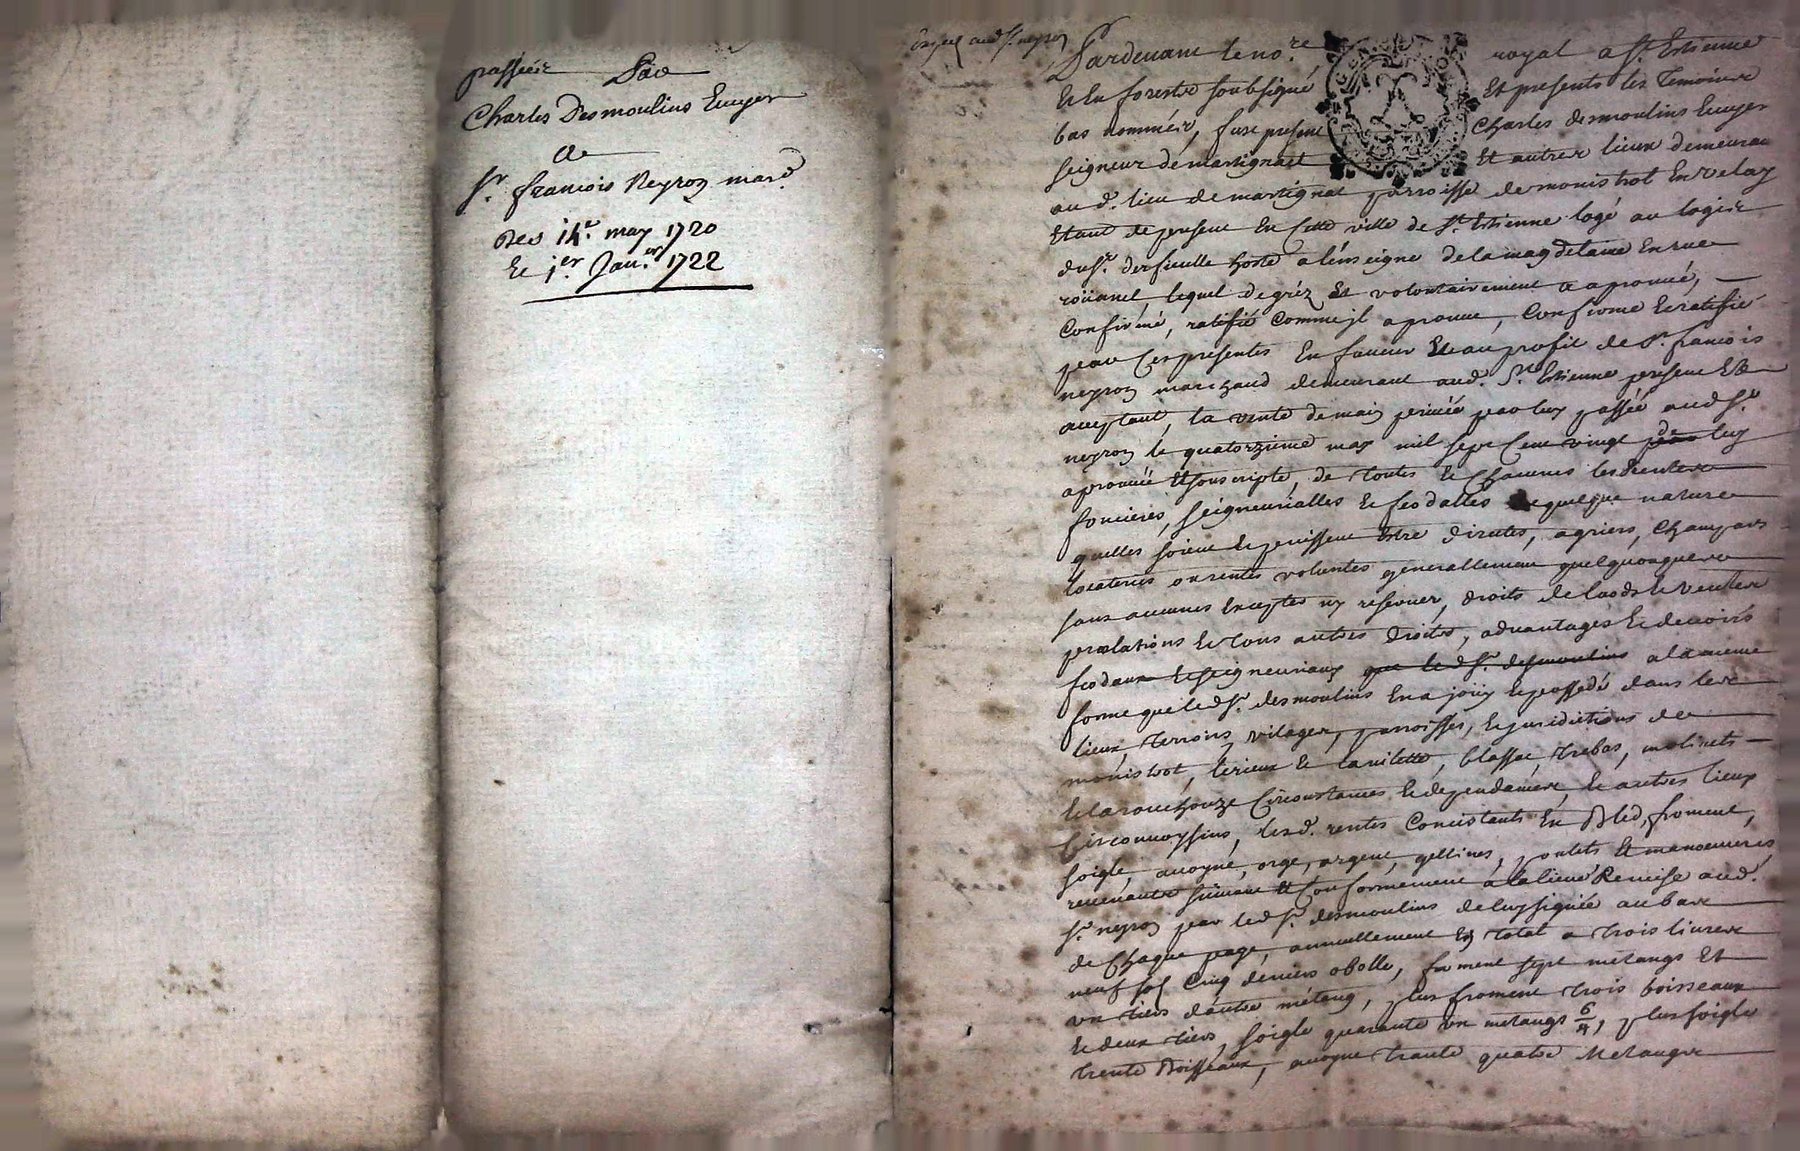 passées Par
Charles Desmoulins Ecuyer
a
Sr. francois Neyron mard.
Des 14e. may 1720
Et 1er. Janer. 1722
aud. Sr. neyron
Pardevant le nore. royal a St. Estienne
Et En forestz soubsigné Et presents les Temoins
bas nommés, fust present Charles desmoulins Ecuyer
seigneur de martignact Et autres lieux demeurant
aud. lieu de martignat parroisse de monistrol En velay
Etant de present En Cette ville de St. Estienne logé au logis
du Sr. hoste a l'enseigne de la magdelaine En rue
roüanel lequel de gréz Et volontairement a aprouvé,
Confirmé, ratifié Comme jl aprouve, Confirme Et ratifie
par Ces presentes En faveur Et au profit de Sr. francois
neyron marchand demeurant aud. St. Estienne present Et
aceptant, la vente de main privée par luy passée aud Sr.
neyron le quatorzieme may mil sept Cent vingt de luy
aprouvée Et souscripte, de toutes Et Chacunes les rentes
foncieres, seigneurialles Et feodalles de quelque nature
quelles soient Et puissent Estre directes, agriers, Champars
locateries ou rentes volantes generallement quelquonques
sans aucunes Excepter ny reserver, droits de laods Et ventes
prælations Et tous autres Droits, advantages Et devoirs
feodaux Et seigneuriaux que le d Sr. desmoulins a la meme
forme que le d Sr. desmoulins En a joüy Et possedé dans les
lieux, terroirs, vilages, parroisses, Et jurisdictions de
monistrol, Et blassac, trebas, molinets
Et la rouchouze Circonstances Et dependances, Et autres lieux
Circonvoysins, les d. rentes Concistants En Bled, froment,
soigle, avoyne, orge, argent, gellines, poulets Et manoeuvres
revenants suivant Et Conformement a la lieve Remise aud.
Sr. neyron par le d Sr. desmoulins de luy signée au bas
de Chaque page, annuellement En total a trois livres
neuf sols Cinq deniers obolle, froment sept metangs Et
un tiers d'autre métang, plus froment trois boisseaux
Et deux tiers, soigle quarante un metangs 6/4, plus soigle
trente Boisseaux, avoyne trante quatre Metangs